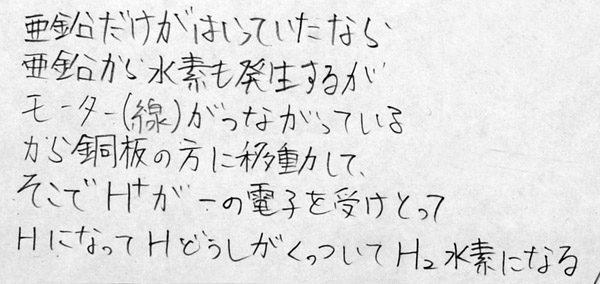 亜鉛だけがはいっていたなら
亜鉛から水素も発生するが
モーター(線)がつながっている
から銅板の方に移動して、
そこでH⁺が一の電子を受けとって
HになってHどうしがくっついてH₂水素になる